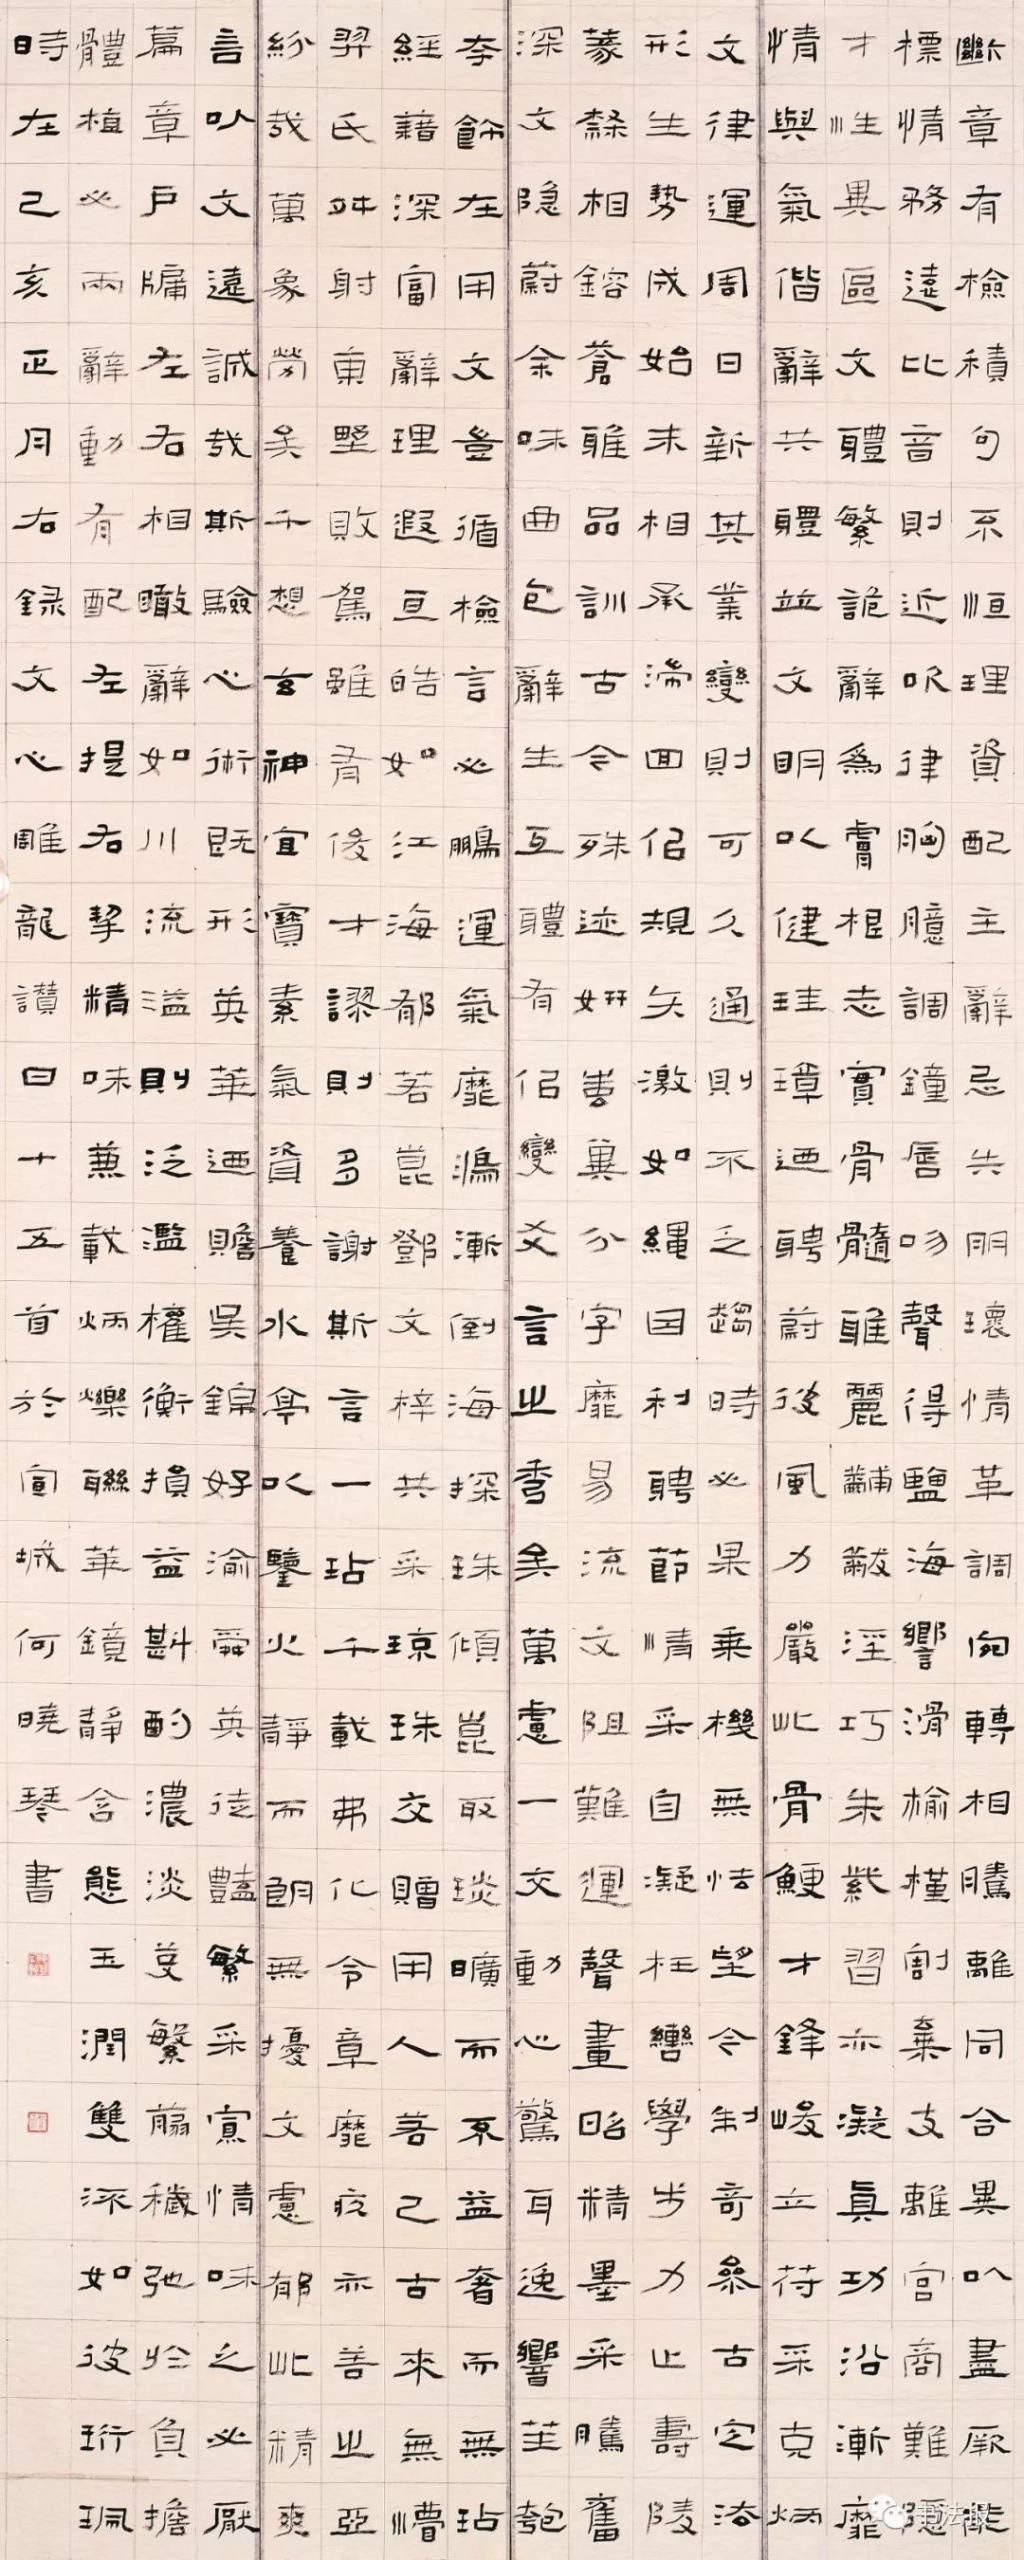 斷章有檢積句不恒理資配主辭忌失朋環情革調宛轉相騰離同合異以盡厥能
標情務遠比音則近吹律胸臆調鐘脣吻聲得鹽海響滑榆槿割棄支離宮商難隱
才性異區文體繁詭辭為膚根志實骨髓雅麗黼黻淫巧朱紫習亦凝真功沿漸靡
情與氣偕辭共體並文明以健珪璋迺聘蔚彼風力嚴此骨鯁才鋒峻立符采克炳
文律運周日新其業變則可久通則不乏趨時必果乘機無怯望今制奇參古定法
形生勢成始末相承湍回侣規矢激如繩因利聘節情采自凝枉轡學步力止壽陵
篆隸相鎔蒼雅品訓古今殊迹妍蚩異分字靡易流文阻難運聲畫昭精墨采騰奮
深文隐蔚余味曲包辭生互體有侣變爻言之秀矣萬慮一交動心驚耳逸響笙匏
夸飾在用文豈循檢言必鵬運氣靡鴻漸倒海探珠傾崑取琰曠而不益奢而無玷
經藉深富辭理遐亘皓如江海郁若崑鄧文梓共采琼珠交贈用人若己古來無懵
羿氏舛射東野敗駕雖有俊才謬則多謝斯言一玷千載弗化令章靡疚亦善之亞
紛哉萬象勞矣千想玄神宜寶素氣資養水亭以鑒火靜而朗無擾文慮郁此精爽
言以文遠誠哉斯驗心術既形英華迺贍吳錦好渝舜英徒豔繁采寡情味之必厭
篇章戶牖左右相瞰辭如川流溢則泛濫權衡損益斟酌濃淡芟繁翦穢弛於負擔
體植必兩辭動有配左提右挈精味兼載炳爍聯華鏡靜含態玉潤雙流如彼珩珮
時在己亥正月右録文心雕龍讚曰十五首於宣城何曉琴書
书法报